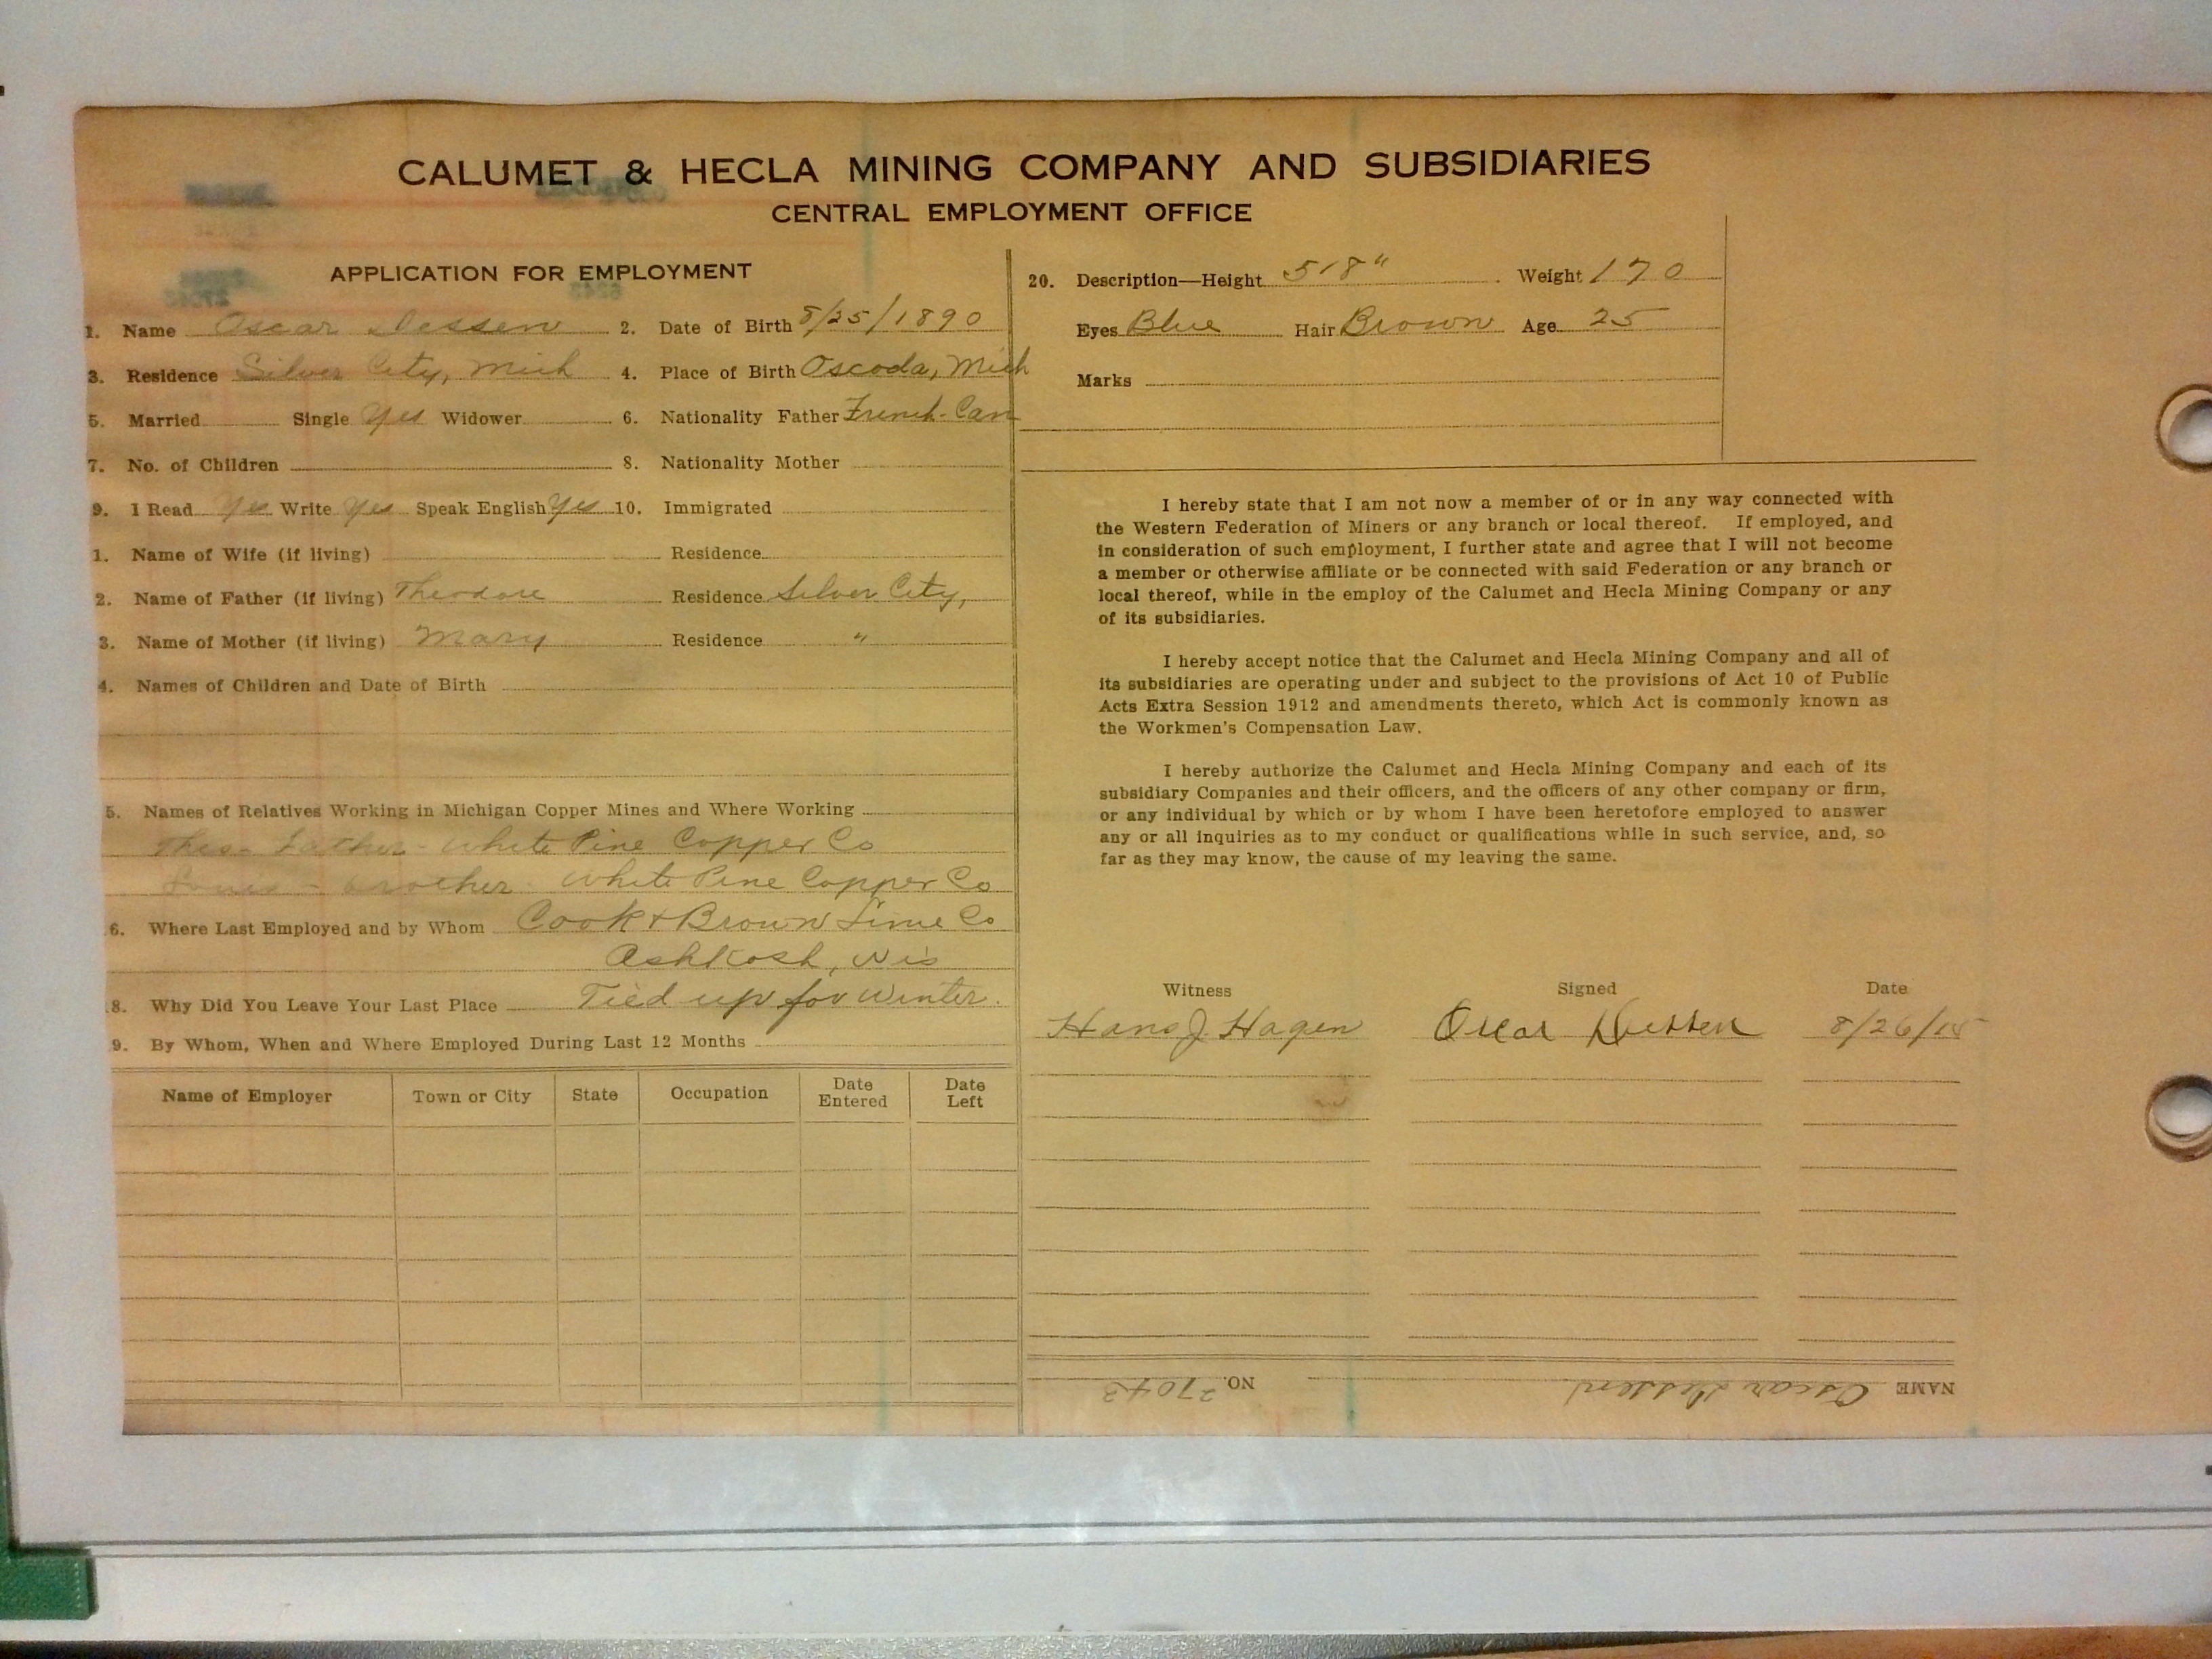 CALUMET & HECLA MINING COMPANY AND SUBSIDIARIES
CENTRAL EMPLOYMENT OFFICE
APPLICATION FOR EMPLOYMENT
1. Name Oscar Dessen 2. Date of Birth 8/25/1890
3. Residence Silver City, Mich 4. Place of Birth Oscoda, Mich
5. Married Single Yes Widower 6. Nationality Father French-Can
7. No. of Children 8. Nationality Mother
9. I Read Yes Write Yes Speak English Yes 10. Immigrated
1. Name of Wife (if living) Residence
2. Name of Father (if living) Theodore Residence Silver City,
3. Name of Mother (if living) Mary Residence "
4. Names of Children and Date of Birth
5. Names of Relatives Working in Michigan Copper Mines and Where Working
Theo - Father - White Pine Copper Co
Louis - brother - White Pine Copper Co
6. Where Last Employed and by Whom Cook & Brown Lime Co
Ashkosh, Wis
8. Why Did You Leave Your Last Place Tied up for Winter.
9. By Whom, When and Where Employed During Last 12 Months
Name of Employer Town or City State Occupation Date Entered Date Left
20. Description—Height 5'8" Weight 170
Eyes Blue Hair Brown Age 25
Marks
I hereby state that I am not now a member of or in any way connected with
the Western Federation of Miners or any branch or local thereof. If employed, and
in consideration of such employment, I further state and agree that I will not become
a member or otherwise affiliate or be connected with said Federation or any branch or
local thereof, while in the employ of the Calumet and Hecla Mining Company or any
of its subsidiaries.
I hereby accept notice that the Calumet and Hecla Mining Company and all of
its subsidiaries are operating under and subject to the provisions of Act 10 of Public
Acts Extra Session 1912 and amendments thereto, which Act is commonly known as
the Workmen's Compensation Law.
I hereby authorize the Calumet and Hecla Mining Company and each of its
subsidiary Companies and their officers, and the officers of any other company or firm,
or any individual by which or by whom I have been heretofore employed to answer
any or all inquiries as to my conduct or qualifications while in such service, and, so
far as they may know, the cause of my leaving the same.
Witness Signed Date
Hans J Hagen Oscar Dessen 8/26/15
NAME Oscar Dessen NO. 27043